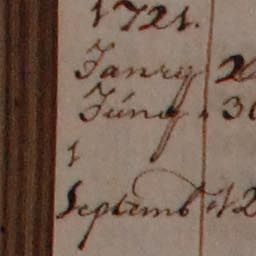 1721.
Janry
Júny 30
1
Septemb 12